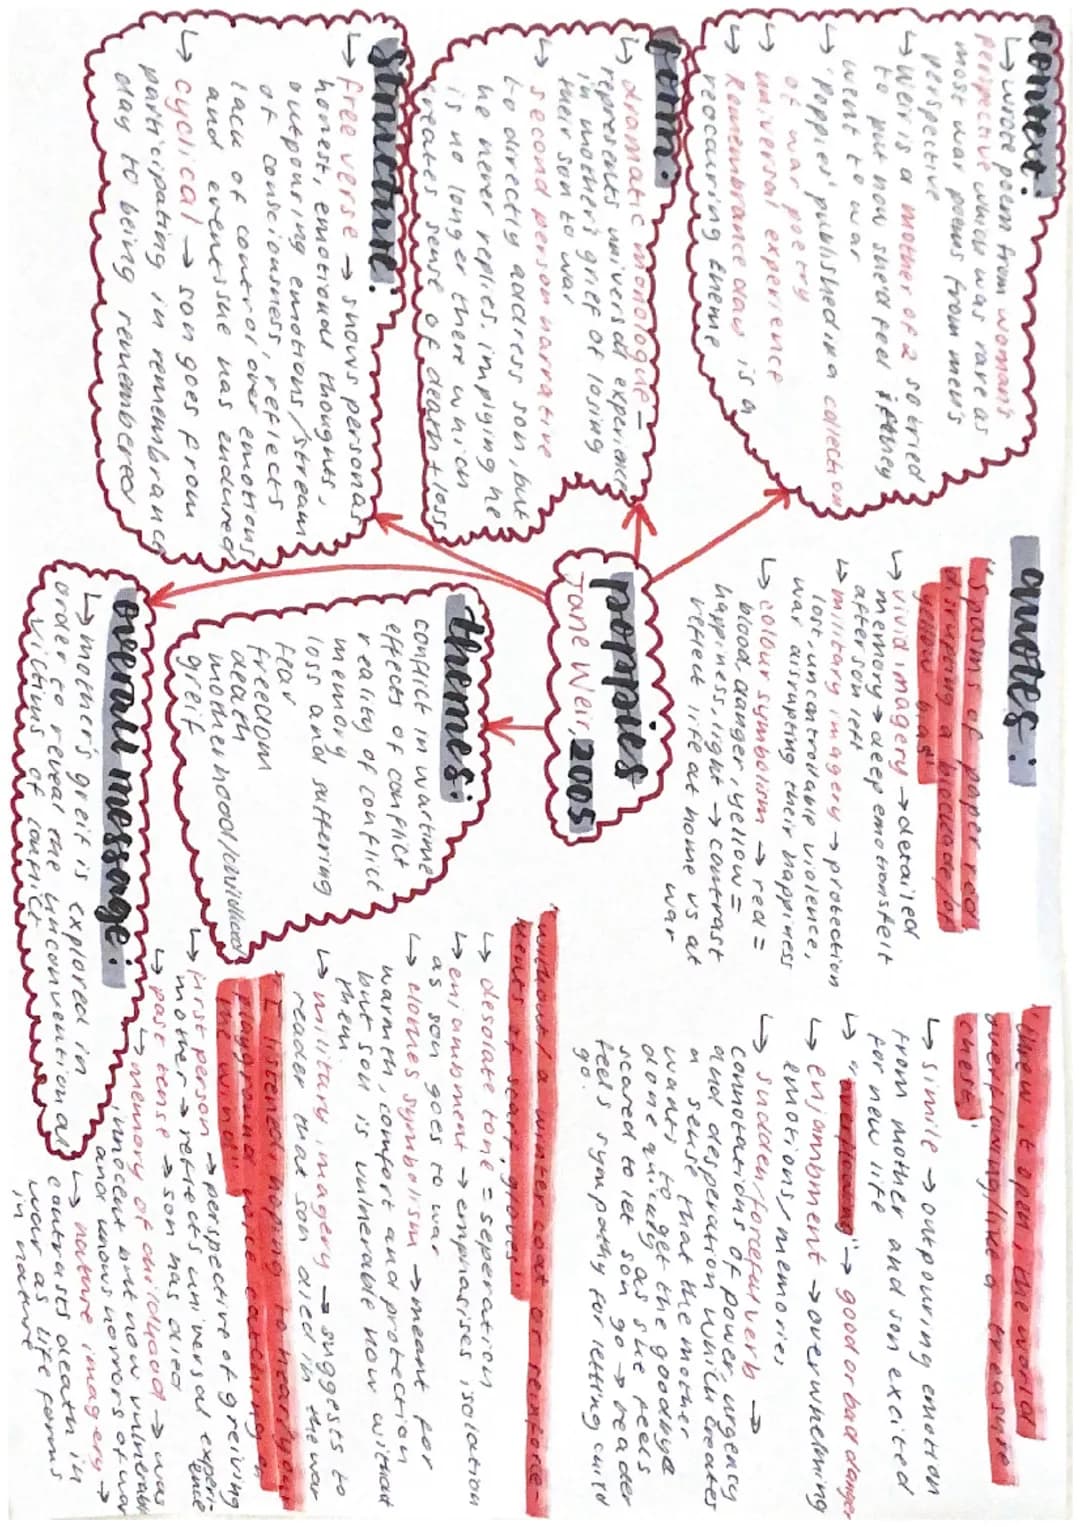 context:
↳ wrote poem from woman's
perspective which was rare as
most war poems from men's
perspective
↳ Weir is a mother of 2 so tried
to put how she'd feel if they
went to war
↳ 'Poppies' published in a collection
of war poetry
↳ universal experience
↳ Remembrance day is a
reoccuring theme
form:
↳ dramatic monologue =
represents universal experience
in mother's grief of losing
their son to war
↳ second person narrative
to directly address son, but
he never replies, implying he
is no longer there which
creates sense of death + loss
structure:
↳ free verse → shows personas
honest, emotional thoughts,
outpouring emotions/stream
of consciousness, reflects
lack of control over emotions
and events she has endured
↳ cyclical → son goes from
participating in remembrance
day to being remembered
poppies
Jane Weir, 2005
themes:
conflict in wartime
effects of conflict
reality of conflict
memory
loss and suffering
fear
freedom
death
motherhood/childhood
greif
overall message:
↳ mother's greif is explored in
order to reveal the unconventional
victims of conflict
quotes:
"spasms of paper red
disrupting a blockade/of
yellow bias"
↳ vivid imagery → detailed
memory → deep emotions felt
after son left
↳ military imagery → protection
lost, uncontrollable violence,
war disrupting their happiness
↳ colour symbolism → red =
blood, danger, yellow =
happiness, light → contrast
reflect life at home vs at
war
threw it open, the world
overflowing/like a treasure
chest"
↳ simile → outpouring emotion
from mother and son excited
for new life
↳ "overflowing" → good or bad danger
↳ enjambment → overwhelming
emotions/memories
↳ sudden/forceful verb →
connotations of power, urgency
and desperation which creates
a sense that the mother
wants to get the goodbye
done quickly as she feels
scared to let son go → reader
feels sympathy for letting child
go.
"without/a winter coat or reinforce-
ments of scarf, gloves"
↳ desolate tone = seperation
↳ enjambment → emphasises isolation
as son goes to war
↳ clothes symbolism → meant for
warmth, comfort and protection
but son is vulnerable now without
them
↳ military imagery → suggests to
reader that son died in the war
"I listened, hoping to hear/your
playground voice catching on
the wind"
↳ first person → perspective of greiving
mother → reflects universal experi-
ence
↳ past tense → son has died
↳ memory of childhood → was
innocent but now vulnerable
and knows horrors of war
↳ nature imagery →
contrasts death in
war as life forms
in nature